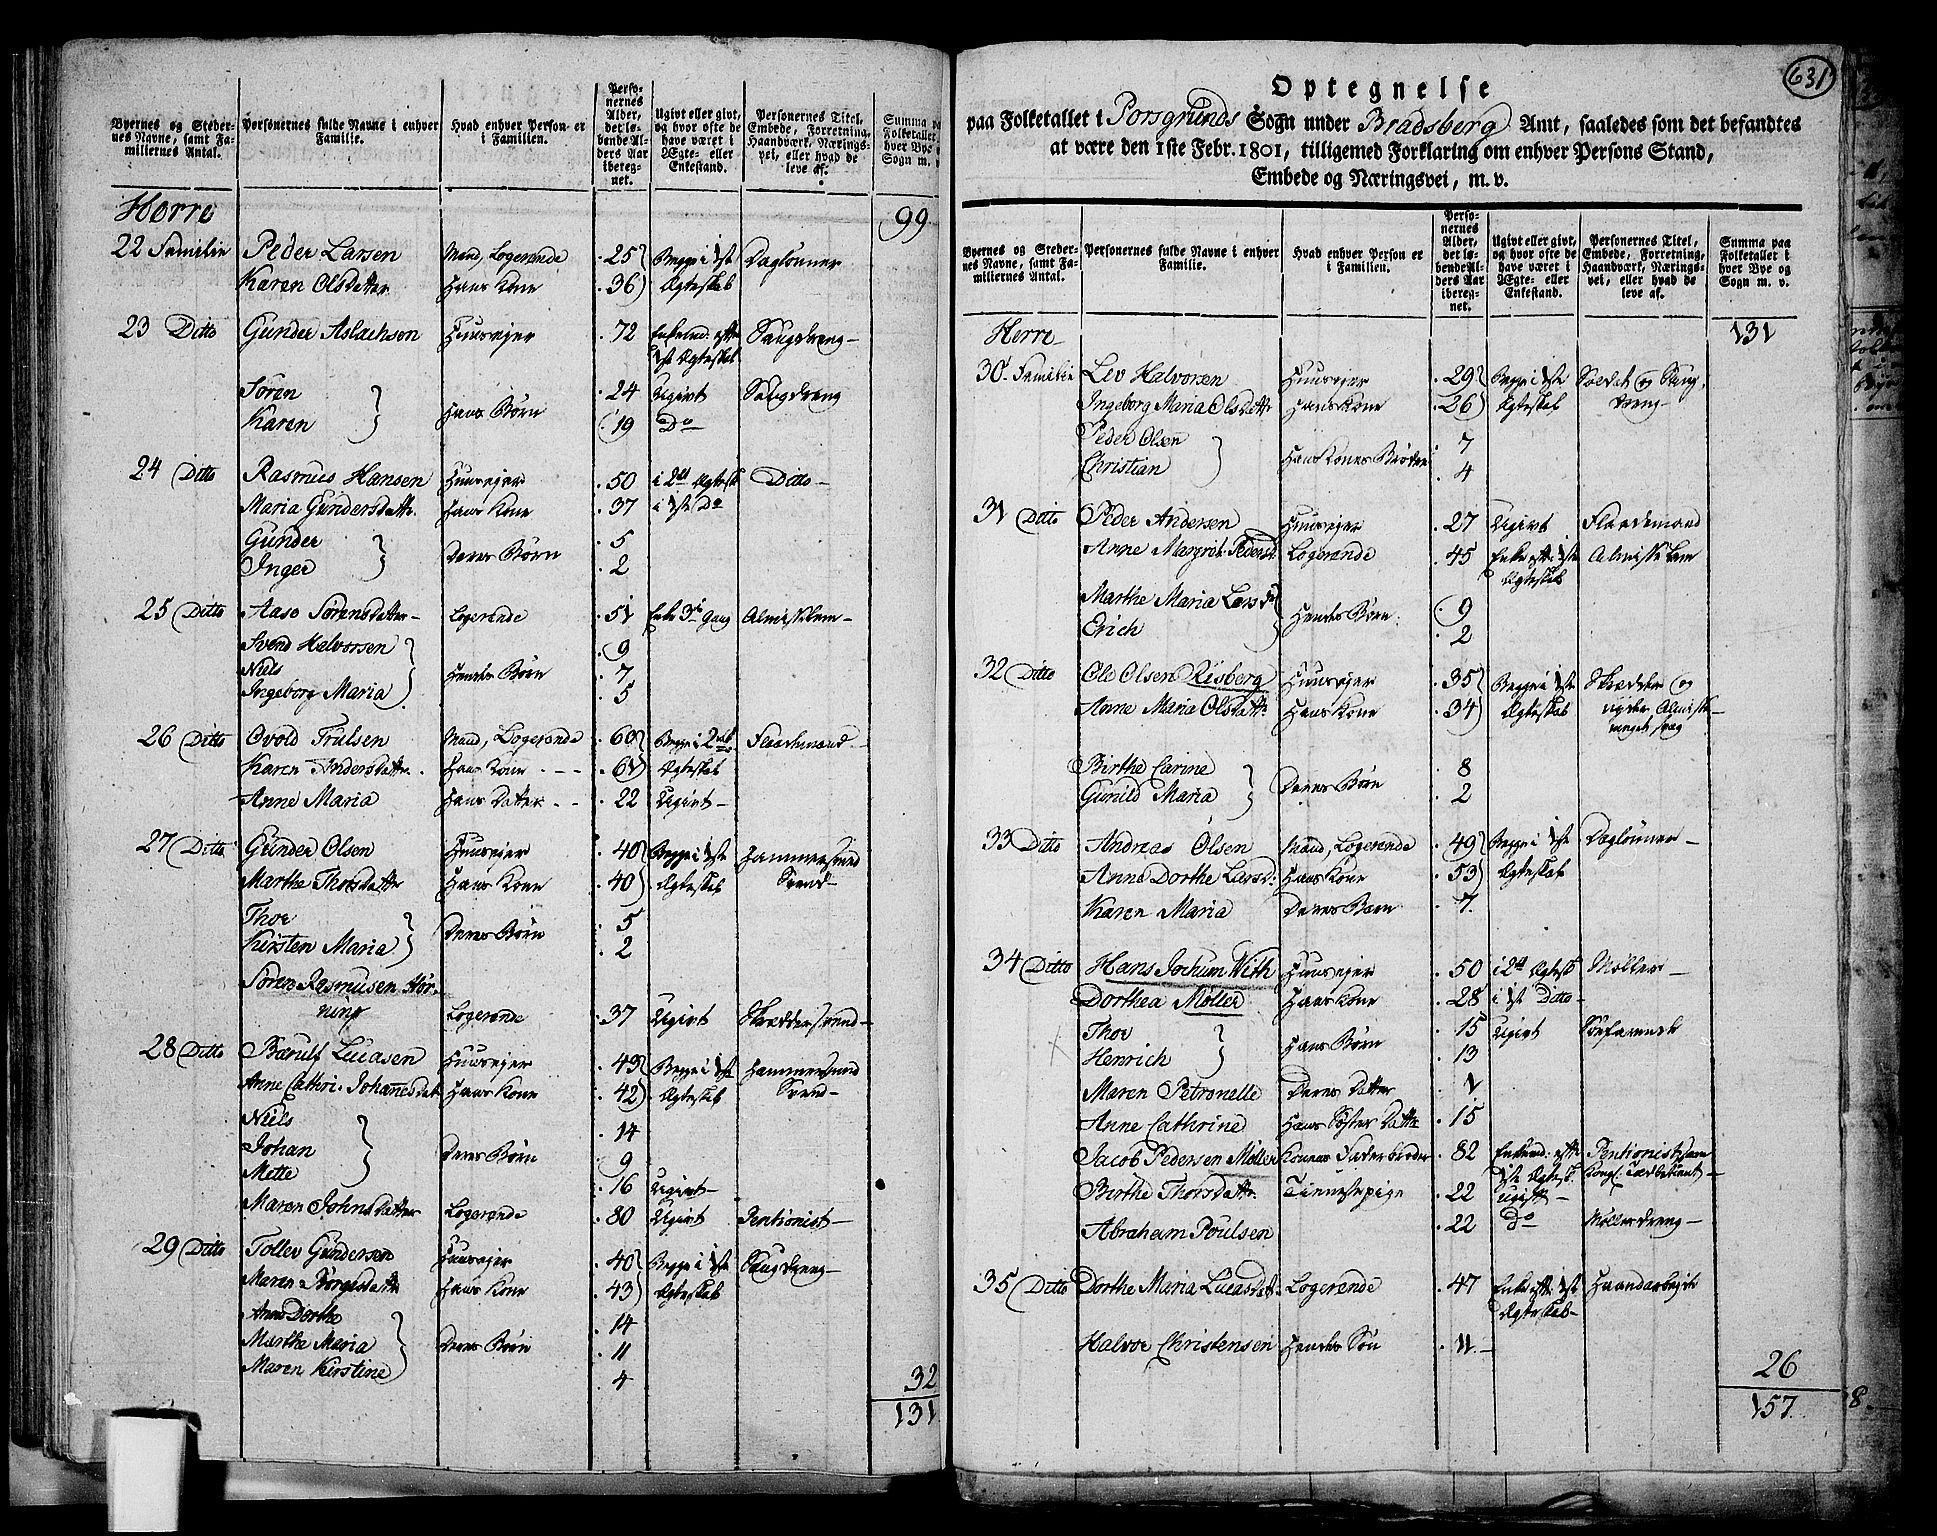 Byernes og Steder-
nes Navne, samt Fa-
milliernes Antal.
Personernes fulde Navne i enhver
Familie.
Hvad enhver Person er
i Familien.
Perso-
nernes
Alder,
det lø-
bende Al-
ders Aar
ibereg-
net.
Ugivt eller givt,
og hvor ofte de
have været i
Ægte- eller
Enkestand.
Personernes Titel,
Embede, Forretning,
Haandværk, Nærings-
vei, eller hvad de
leve af.
Summa
Folketallet
hver Bye
Sogn m. v.
Herre 99
22 Familie Peder Larsen Mand, Logerende 25 Begge i 1ste Daglønner
Karen Olsdatter Hans Kone 36 Ægteskab
23 Ditto Gunder Aslachson Huusejer 72 Enkem: efter Saugdreng
1ste Ægteskab
Søren 24 Ugivt Saugdreng
Karen Hans Børn 19 Do
24 Ditto Rasmus Hansen Huusejer 50 i 2det Ægtesk Ditto
Maria Gundersdattr. Hans Kone 37 i 1ste Do
Gunder 5
Inger Deres Børn 2
25 Ditto Aase Sørensdatter Logerende 51 Enke 3de Gang Almisselem
Svend Halvorsen 9
Niels Hendes Børn 7
Ingeborg Maria 5
26 Ditto Ovold Trulsen Mand, Logerende 60 Begge i 2det Flaademand
Karen Andersdattr. Hans Kone 61 Ægteskab
Anne Maria Hans Datter 22 Ugivt
27 Ditto Gunder Olsen Huusejer 40 Begge i 1ste Hammersmed
Marthe Thorsdattr Hans Kone 40 Ægteskab Svend
Thor 5
Kirsten Maria Deres Børn 2
Søren Rasmusen Hør-
ning Logerende 37 Ugivt Skræddersvend
28 Ditto Bærulf Lucasen Huusejer 43 Begge i 1ste Hammersmed
Anne Cathri. Johanesdat Hans Kone 42 Ægteskab Svend
Niels 14
Johan Deres Børn 9
Mette 16 Ugivt
Maren Johnsdatter Logerende 80 Ugivt Pentionist
29 Ditto Tollev Gundersen Huusejer 40 Begge i 1ste Saugdreng
Maren Børgesdattr Hans Kone 43 Ægteskab
Anne Dorthe 14
Marthe Maria Deres Børn 11
Maren Kirstine 4
32
131
631
Optegnelse
paa Folketallet i Porsgrunds Sogn under Bradsberg Amt, saaledes som det befandtes
at være den 1ste Febr. 1801, tilligemed Forklaring om enhver Persons Stand,
Embede og Næringsvei, m. v.
Byernes og Steder-
nes Navne, samt Fa-
milliernes Antal.
Personernes fulde Navne i enhver
Familie.
Hvad enhver Person er
i Familien.
Perso-
nernes
Alder,
det lø-
bende Al-
ders Aar
ibereg-
net.
Ugivt eller givt,
og hvor ofte de
have været i
Ægte- eller
Enkestand.
Personernes Titel,
Embede, Forretning,
Haandværk, Nærings-
vei, eller hvad de
leve af.
Summa paa
Folketallet i
hver Bye og
Sogn m. v.
Herre 131
30 Familie Lev Halvorsen Huusejer 29 Begge i 1ste Soldat og Saug
Ingeborg Maria Olsdattr Hans Kone 26 Ægteskab dreng
Peder Olsen 7
Christian Hans Kones Brødre 4
31 Ditto Peder Andersen Huusejer 27 Ugivt Flaademand
Anne Margret Pedersd Logerende 45 Enke eftr 1ste Almisse Lem
Ægteskab
Marthe Maria Larsd 9
Erich Hendes Børn 2
32 Ditto Ole Olsen Risberg Huusejer 35 Begge i 1ste Skrædder og
Anne Maria Olsdattr. Hans Kone 34 Ægteskab nyder Almisse
Birthe Carine 8
Gunild Maria Deres Børn 2
33 Ditto Andreas Olsen Mand, Logerende 49 Begge i 1ste Daglønner
Anne Dorthe Larsd: Hans Kone 53 Ægteskab
Karen Maria Deres Barn 7
34 Ditto Hans Jochum With Huusejer 50 i 2det Ægtesk Møller
Dorthea Møller Hans Kone 28 i 1ste Ditto
Thor 15 Ugivt Søefarende
Henrich Hans Børn 13
Maren Petronelle Deres Datter 1
Anne Cathrine Hans Søster Dattr 15
Jacob Pedersen Møller Konens Faderbroder 82 Enkemd: eftr Pentionist som
1ste Ægtesk. Kongl: Toldbetient
Birthe Thorsdattr. Tienestepige 22 Ugivt
Abraham Poulsen 22 Do Møllerdreng
35 Ditto Dorthe Maria Lucasdattr Logerende 47 Enke eftr 1ste Haandarbejde
Ægteskab
Halvor Christensen Hendes Søn 11
26
157